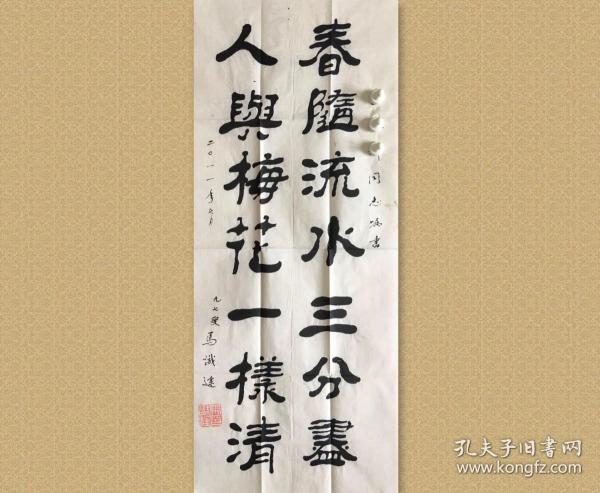 同志嘱书
春隨流水三分盡
人與梅花一樣清
二〇一一年七月
九七叟馬識途
孔夫子旧书网
www.kongfz.com